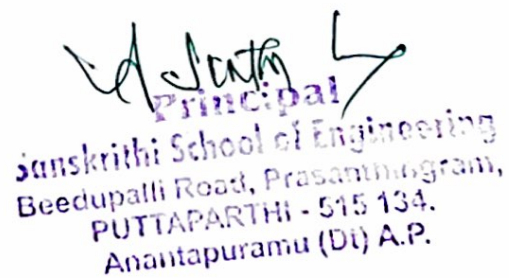 Principal
Sanskrithi School of Engineering
Beedupalli Road, Prasanthingram,
PUTTAPARTHI - 515 134.
Anantapuramu (Dt) A.P.